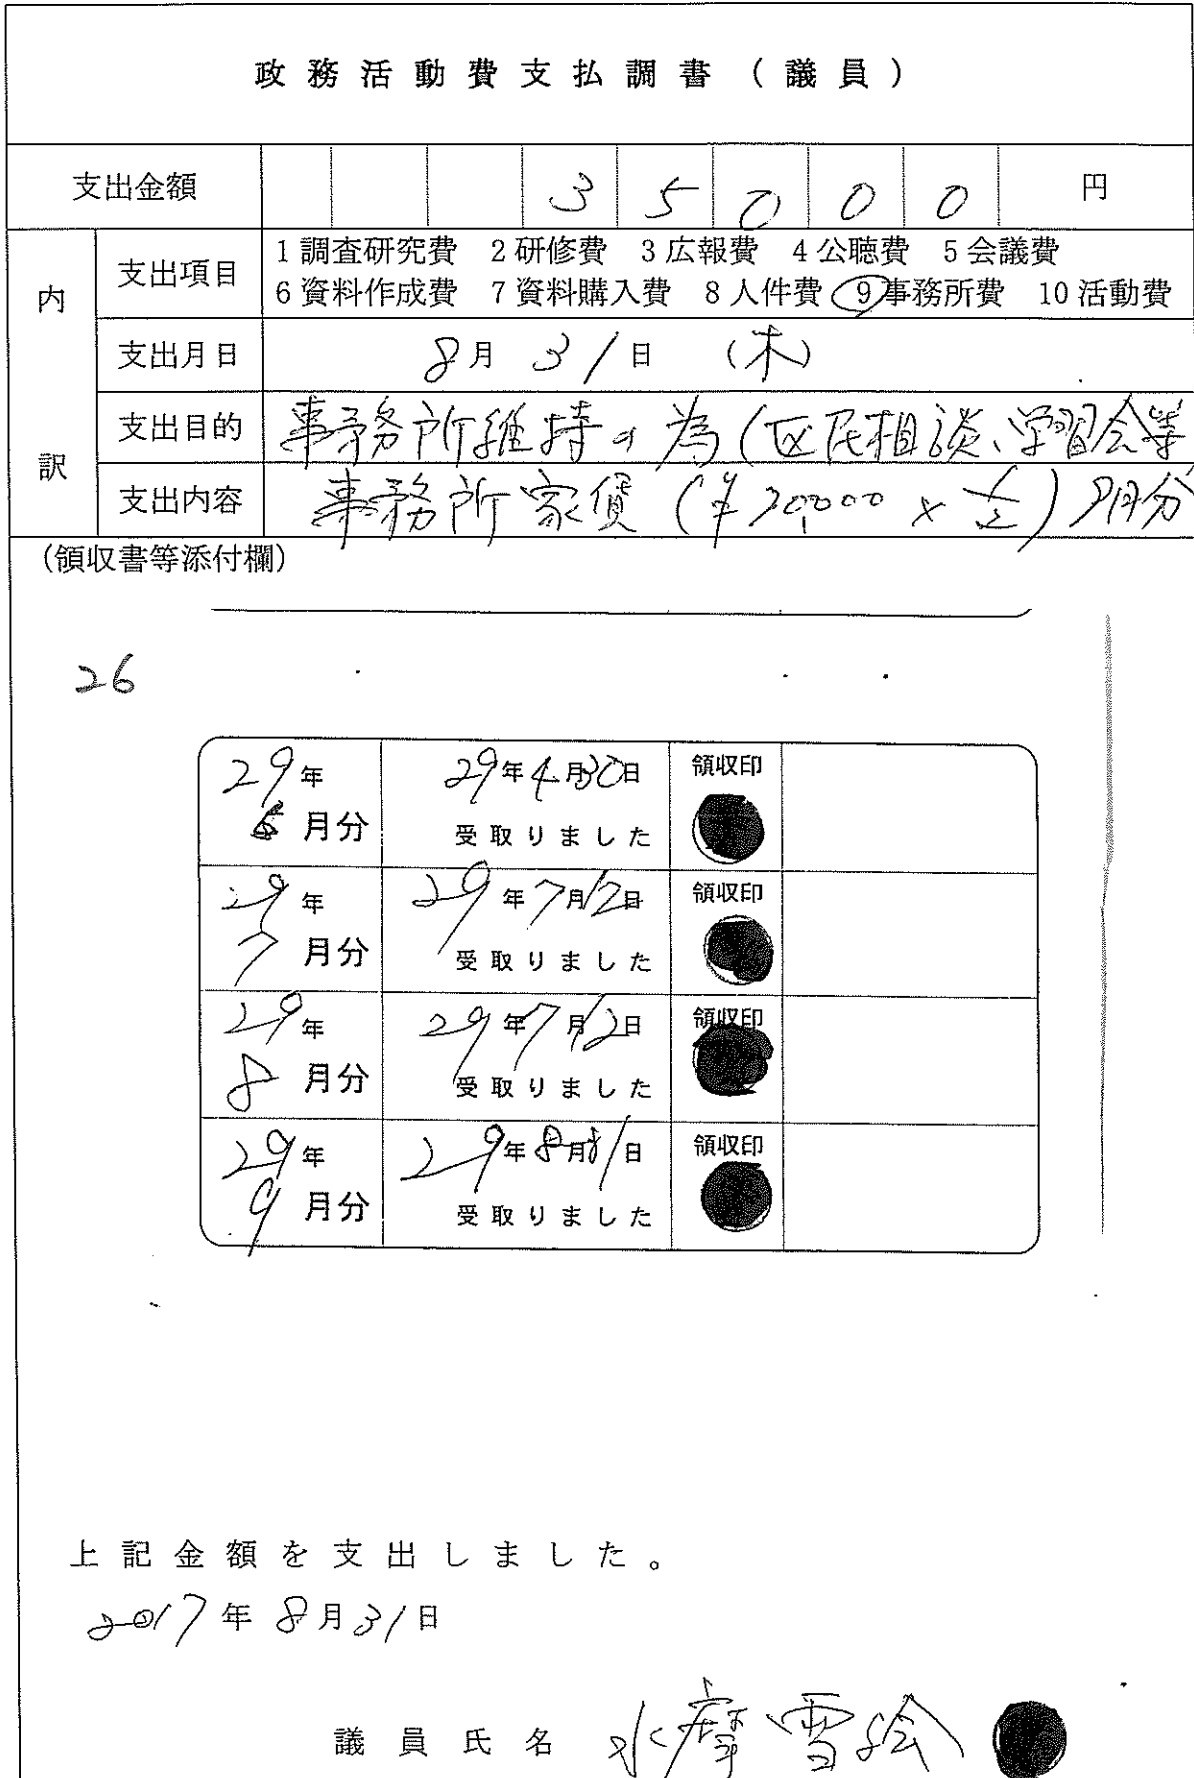 政務活動費支払調書(議員)
支出金額 35000 円
内訳
支出項目 1調査研究費 2研修費 3広報費 4公聴費 5会議費
6資料作成費 7資料購入費 8人件費 ⑨事務所費 10活動費
支出月日 8月31日 (木)
支出目的 事務所維持の為(区民相談、学習会等
支出内容 事務所家賃(¥70,000×1/2) 9月分
(領収書等添付欄)
26
29年 29年4月30日 領収印
月分 受取りました
29年 29年7月12日 領収印
7月分 受取りました
29年 29年7月12日 領収印
8月分 受取りました
29年 29年8月31日 領収印
9月分 受取りました
上記金額を支出しました。
2017年8月31日
議員氏名 水摩雪絵